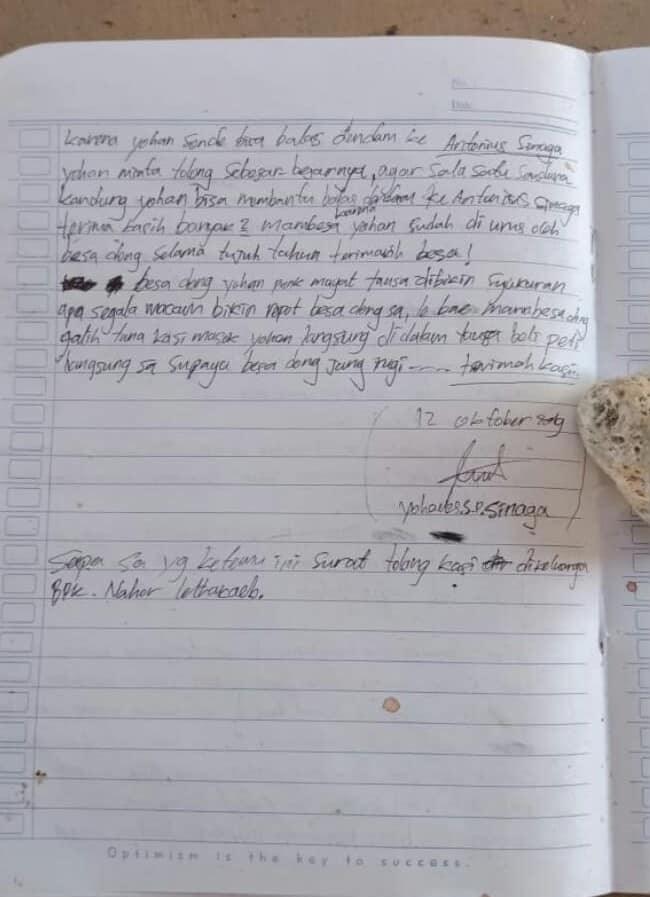 No.
Date
karena yohan sonde bisa balas dendam ke Antonius Sinaga
yohan minta tolong sebesar besarnya, agar sala satu saudara
kandung yohan bisa membantu balas dendam ke Antonius Sinaga
terima kasih banyak 2 mambesa karena yohan sudah di urus oleh
besa dong selama tujuh tahun terimakasih besa!
besa dong yohan punk mayat tausa dibikin syukuran
apa segala macam bikin repot besa dong sa, lo bae mama besa dong
galih tana kasi masok yohan langsung di dalam tausa beli peti
langsung sa supaya besa dong jang rugi terimah kasi
12 oktober
yohanes.S.P.Sinaga
Sapa sa yg ketemu ini surat tolong kasi di keluarga
BPK. Nahor
Optimism is the key to success.